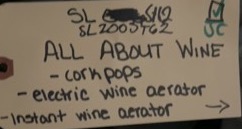 SL GH2
SL2003TG2
JC
ALL ABOUT WINE
- cork pops
- electric wine aerator
- instant wine aerator →